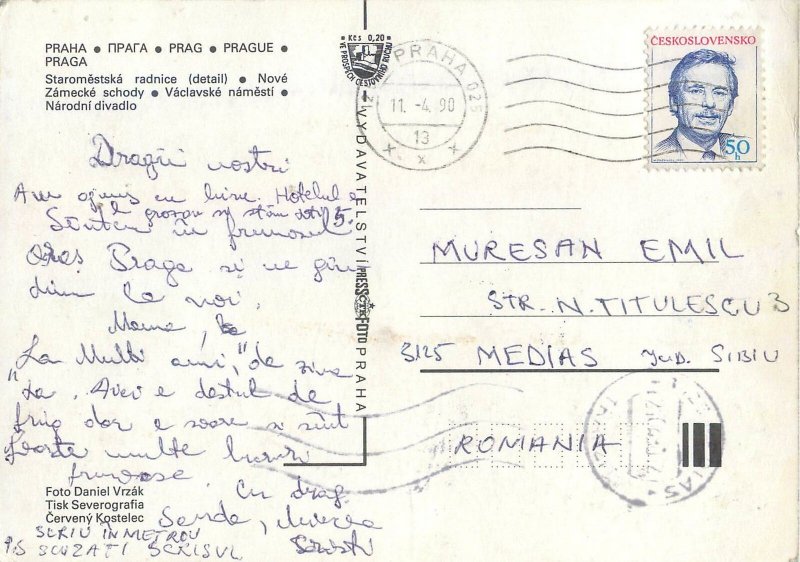 PRAHA • ПРАГА • PRAG • PRAGUE •
PRAGA
Staroměstská radnice (detail) • Nové
Zámecké schody • Václavské náměstí •
Národní divadlo
Kčs 0,20
VE PROSPĚCH CESTOVNÍHO RUCHU
PRAHA 025
11.-4.90
13
ČESKOSLOVENSKO
50
h
VYDAVATELSTVÍ PRESSFOTO PRAHA
Dragii noștri
Am ajuns cu bine. Hotelul e
grozav și stăm toți 5.
Sîntem în frumosul
oraș Praga și ne gîn
dim la voi.
Mama,
"La Mulți ani," de ziua
ta. Aici e destul de
frig dar e soare și sînt
foarte multe lucruri
frumoase.
Cu drag
Sanda, Mircea
Cristi
SCRIU ÎN METROU
PS SCUZAȚI SCRISUL
MURESAN EMIL
STR. N. TITULESCU 3
3125 MEDIAS JUD. SIBIU
ROMANIA
Foto Daniel Vrzák
Tisk Severografia
Červený Kostelec